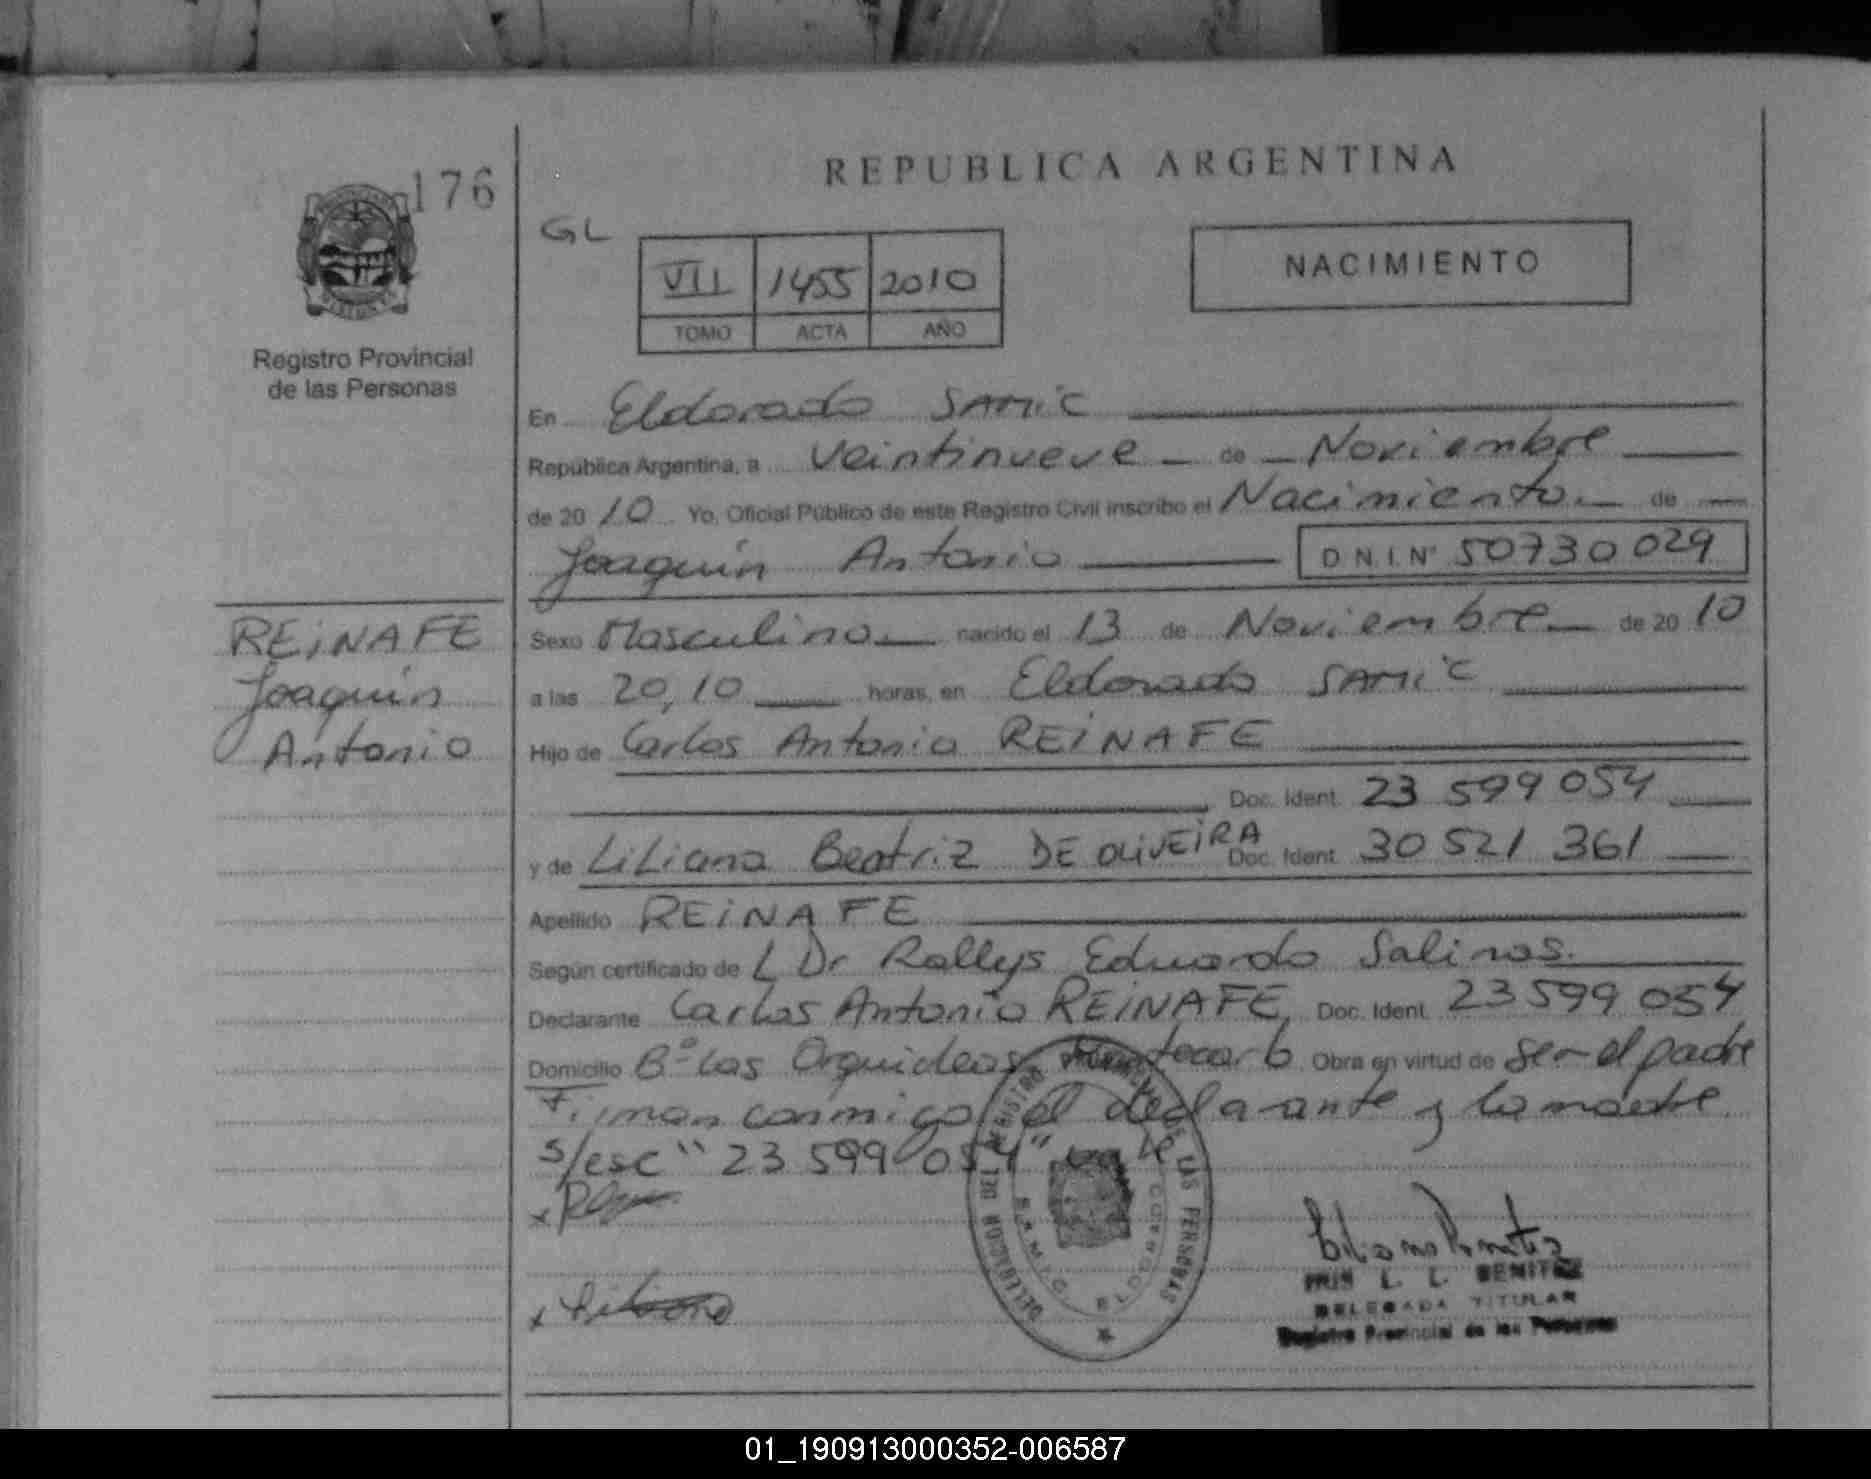 176
REPUBLICA ARGENTINA
GL
VII 1455 2010
TOMO ACTA AÑO
NACIMIENTO
Registro Provincial
de las Personas
En Eldorado SAMiC
República Argentina, a veintinueve de Noviembre
de 20 10 Yo, Oficial Público de este Registro Civil inscribo el Nacimiento de
Joaquín Antonio D.N.I. Nº 50730029
REiNAFE
Joaquín
Antonio
Sexo Masculino nacido el 13 de Noviembre de 20 10
a las 20,10 horas, en Eldorado SAMiC
Hijo de Carlos Antonio REiNAFE
Doc. Ident. 23 599 054
y de LiLiana Beatriz DE OLiVEiRA Doc. Ident. 30 521 361
Apellido REiNAFE
Según certificado de L Dr Rallys Eduardo Salinas.
Declarante Carlos Antonio REiNAFE, Doc. Ident. 23 599 054
Domicilio Bº Las Orquideas Obra en virtud de ser el padre
Firman conmigo el declarante y la madre
s/esc "23 599 054"
DELEGACION DEL REGISTRO PROVINCIAL DE LAS PERSONAS
S.A.M.I.C. ELDORADO
L. L. BENITEZ
DELEGADA TITULAR
Registro Provincial de las Personas
01_190913000352-006587